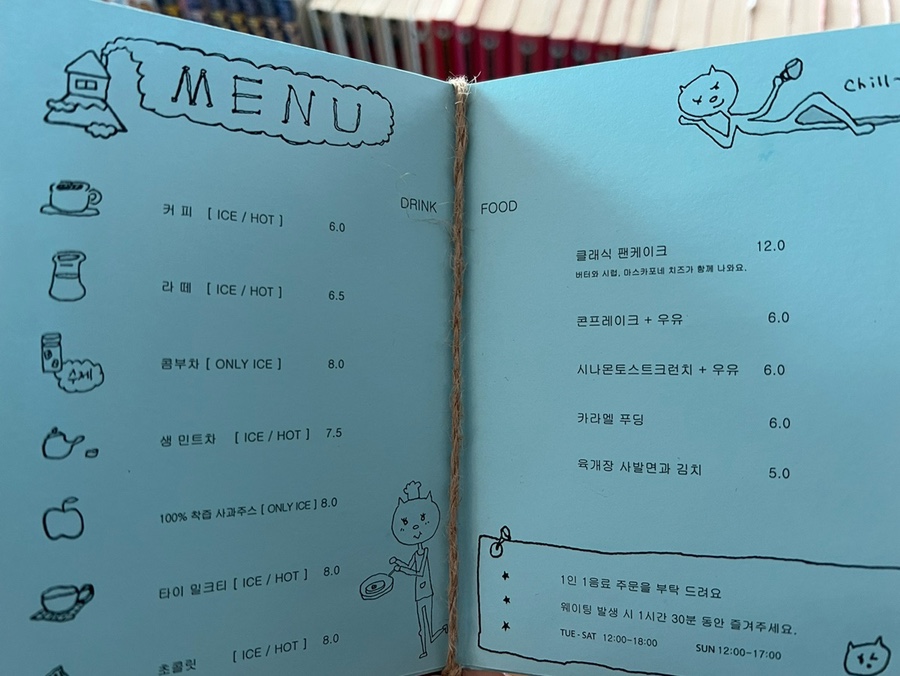 MENU
DRINK
커피 [ ICE / HOT ] 6.0
라떼 [ ICE / HOT ] 6.5
수제
콤부차 [ ONLY ICE ] 8.0
생 민트차 [ ICE / HOT ] 7.5
100% 착즙 사과주스 [ ONLY ICE ] 8.0
타이 밀크티 [ ICE / HOT ] 8.0
초콜릿 [ ICE / HOT ] 8.0
Chill-
FOOD
클래식 팬케이크 12.0
버터와 시럽, 마스카포네 치즈가 함께 나와요.
콘프레이크 + 우유 6.0
시나몬토스트크런치 + 우유 6.0
카라멜 푸딩 6.0
육개장 사발면과 김치 5.0
1인 1음료 주문을 부탁 드려요
웨이팅 발생 시 1시간 30분 동안 즐겨주세요.
TUE - SAT 12:00-18:00 SUN 12:00-17:00